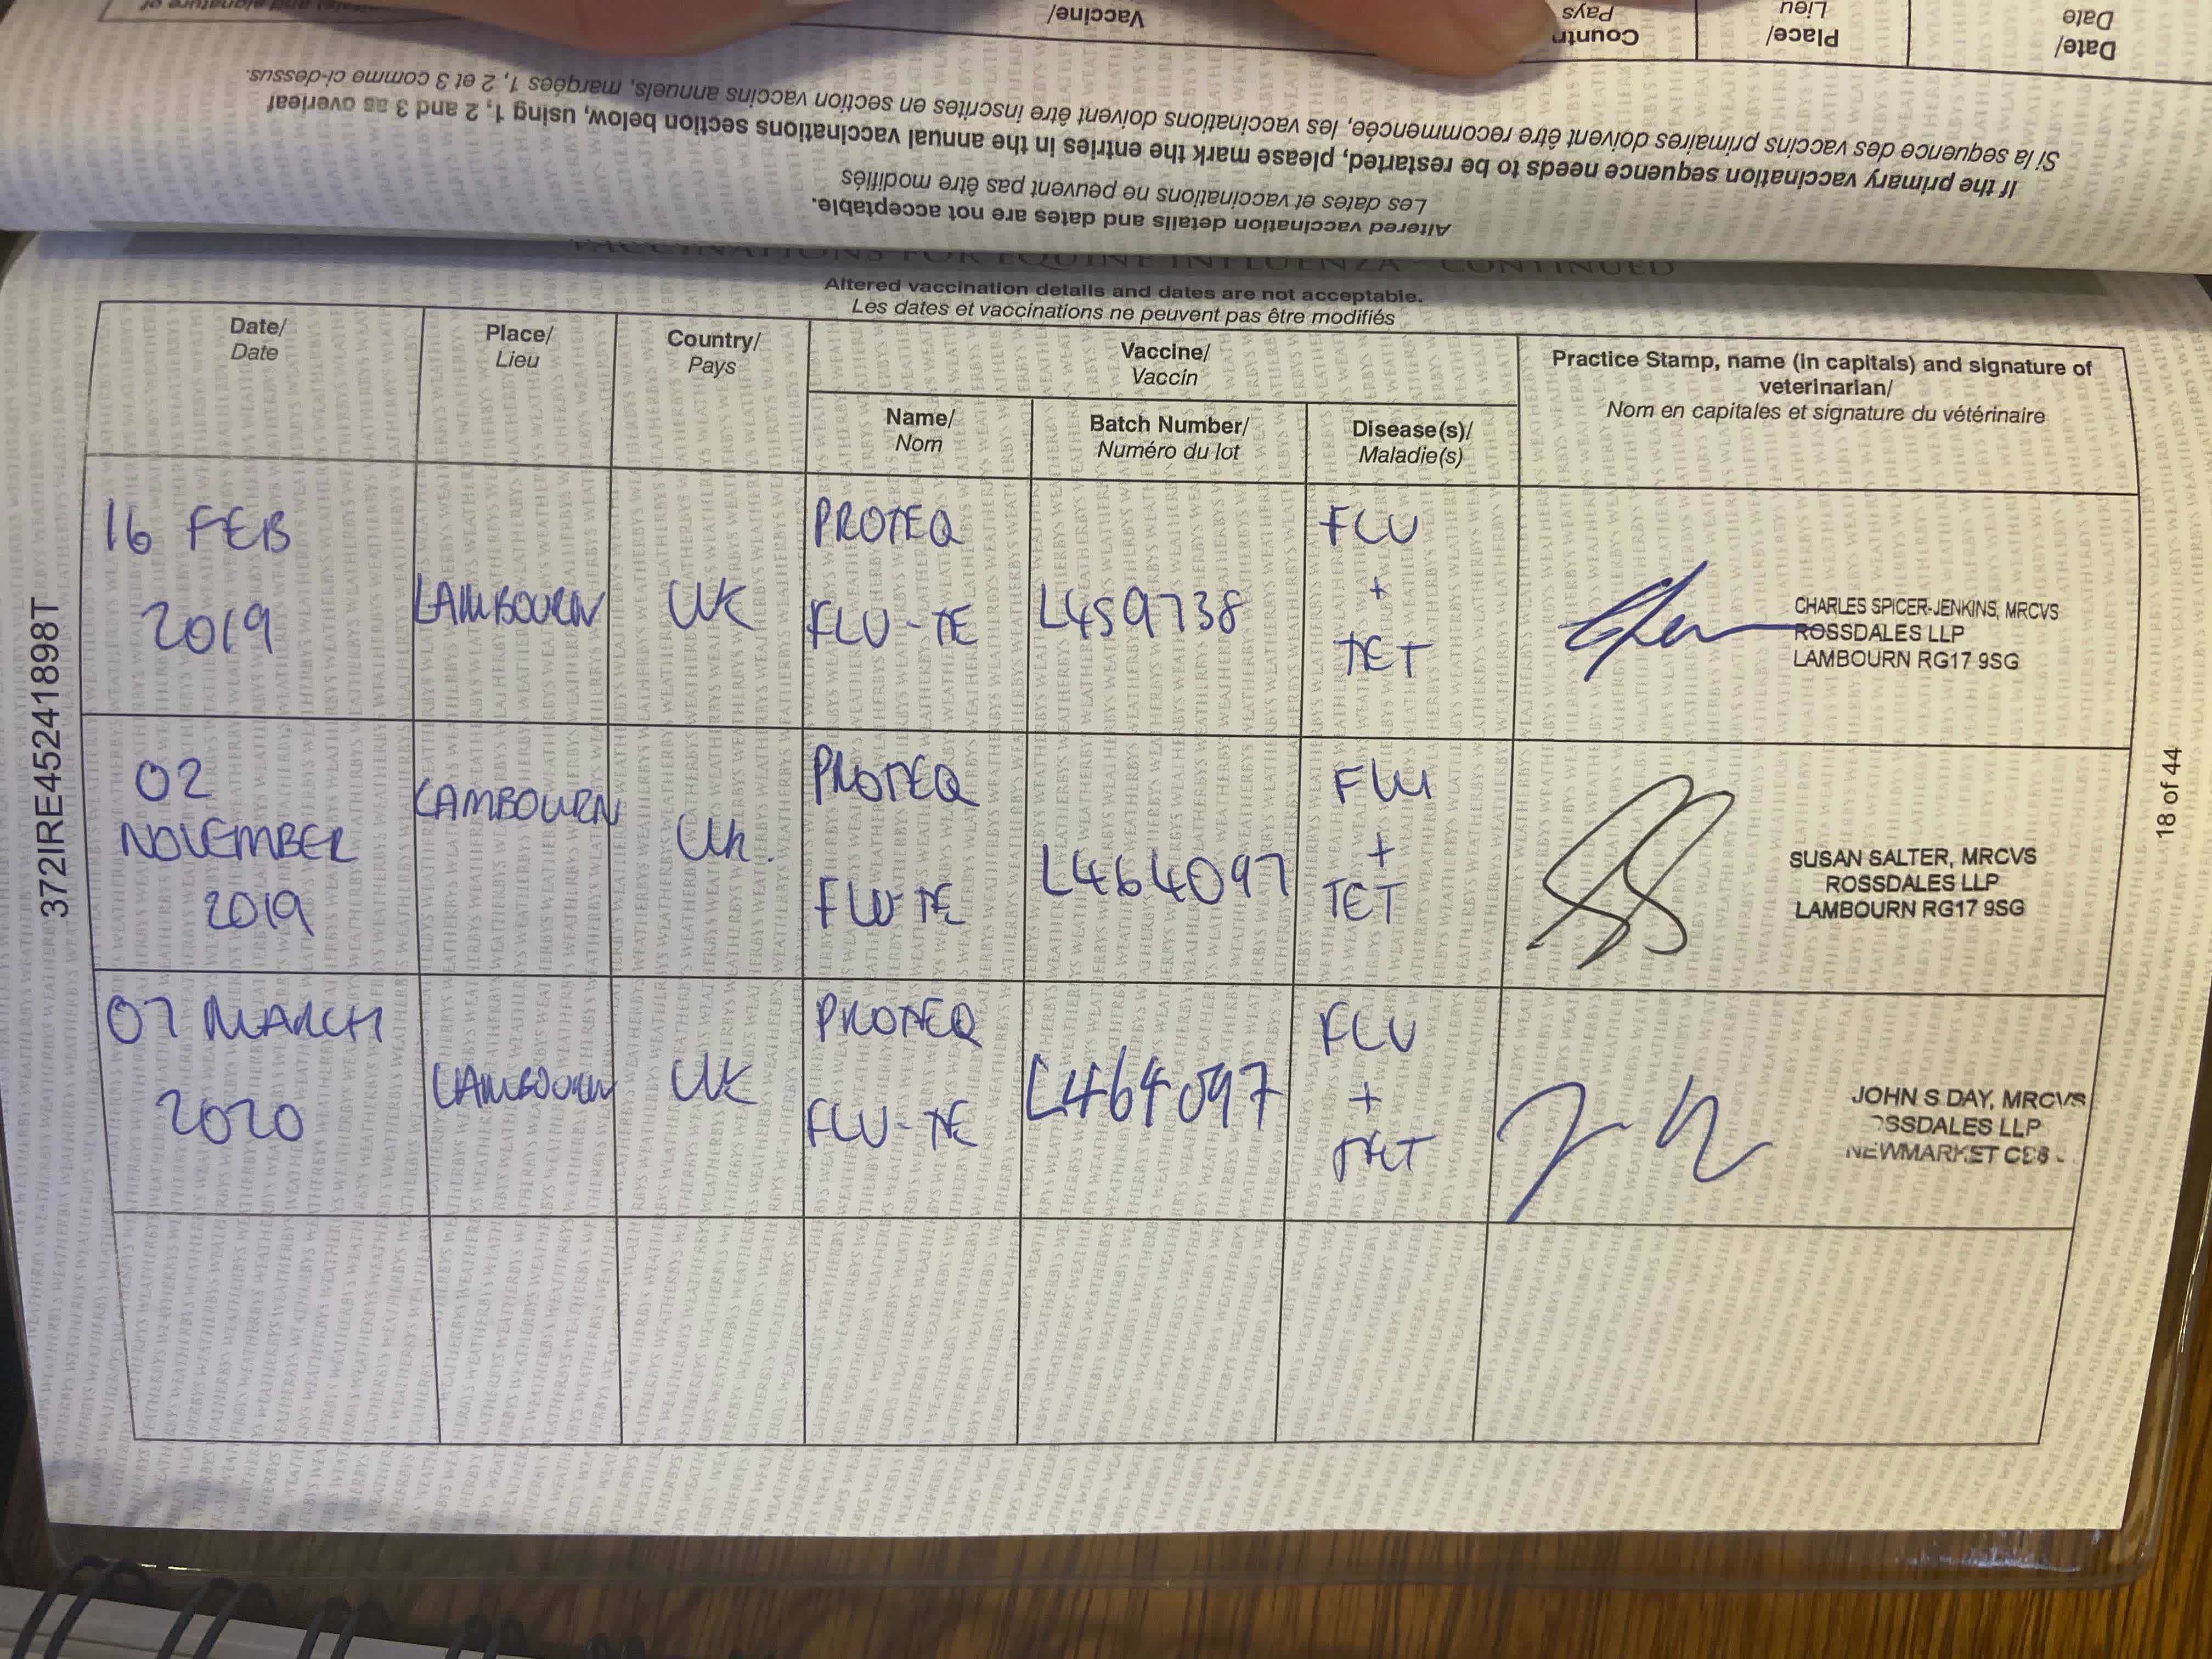 Vaccine/
Country
Pays
Place/
Lieu
Date/
Date
If the primary vaccination sequence needs to be restarted, please mark the entries in the annual vaccinations section below, using 1, 2 and 3 as overleaf
Si la sequence des vaccins primaires doivent être recommencée, les vaccinations doivent être inscrites en section vaccins annuels, marquées 1, 2 et 3 comme ci-dessus.
Altered vaccination details and dates are not acceptable.
Les dates et vaccinations ne peuvent pas être modifiés
VACCINATIONS FOR EQUINE INFLUENZA - CONTINUED
Altered vaccination details and dates are not acceptable.
Les dates et vaccinations ne peuvent pas être modifiés
Date/
Date
Place/
Lieu
Country/
Pays
Vaccine/
Vaccin
Name/
Nom
Batch Number/
Numéro du lot
Disease(s)/
Maladie(s)
Practice Stamp, name (in capitals) and signature of
veterinarian/
Nom en capitales et signature du vétérinaire
16 FEB
2019
LAMBOURN
UK
PROTEQ
FLU-TE
L459738
FLU
+
TET
CHARLES SPICER-JENKINS, MRCVS
ROSSDALES LLP
LAMBOURN RG17 9SG
02
NOVEMBER
2019
LAMBOURN
UK.
PROTEQ
FLU-TE
L464097
FLU
+
TET
SUSAN SALTER, MRCVS
ROSSDALES LLP
LAMBOURN RG17 9SG
07 MARCH
2020
LAMBOURN
UK
PROTEQ
FLU-TE
L464097
FLU
+
TET
JOHN S DAY, MRCVS
OSSDALES LLP
NEWMARKET CB8
372IRE45241898T
18 of 44